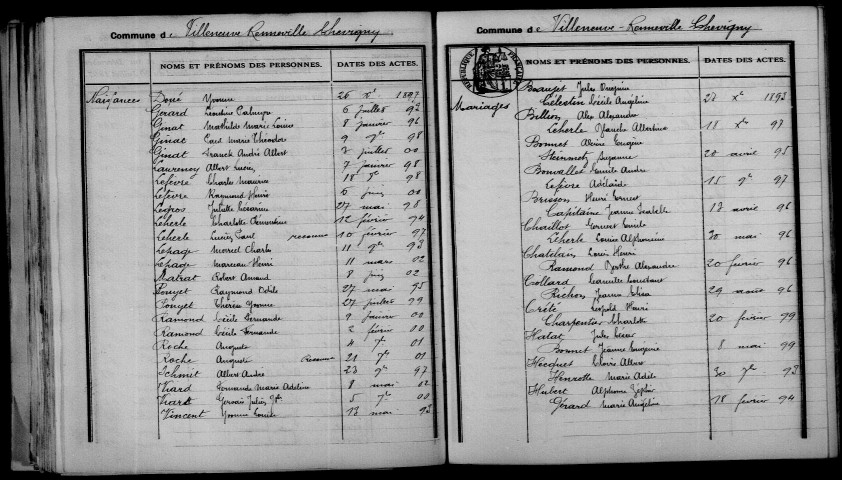 Commune de Villeneuve Renneville Chevigny
NOMS ET PRÉNOMS DES PERSONNES. DATES DES ACTES.
Naissances Doué Yvonne 26 Xe 1897
Gérard Léontine 6 juillet 92
Ginat Mathilde Marie Louise 8 janvier 96
Ginat Marie Théodore 9 98
Ginat Franck André Albert 2 juillet 00
Laurenoy Albert Lucien 7 janvier 98
Lefèvre Charles Maurice 18 98
Lefèvre Raymond Henri 6 juin 00
Legros Juliette Césarine 27 mai 98
Leherle Charlotte Clémentine 12 février 94
Leherle Lucien Paul reconnu 10 février 97
Lesage Marcel Charles 11 93
Lesage Marceau Henri 11 mars 02
Matrat Robert Arnaud 8 juin 02
Pouyet Raymond Odile 27 mai 95
Pouyet Thérèse Yvonne 27 juillet 99
Ramond Cécile Fernande 9 janvier 00
Ramond Cécile Fernande 2 février 00
Roche Auguste 4 01
Roche Auguste reconnu 21 01
Schmit Albert André 23 97
Viard Fernande Marie Adeline 8 mai 02
Viard Gervais Julien 5 00
Vincent Yvonne Louise 13 mai 93
Commune de Villeneuve-Renneville Chevigny
RÉPUBLIQUE FRANÇAISE
NOMS ET PRÉNOMS DES PERSONNES. DATES DES ACTES.
Mariages
Beaujet Jules Eugène
Célestin Cécile Angéline 27 Xe 1893
Billion Alex Alexandre
Leherle Blanche Albertine 18 Xe 97
Bonnet Eugène
Suzanne 20 avril 95
Bonvallet Emile André
Lefèvre Adélaïde 15 97
Brisson Henri Ernest
Capitaine Jeanne 13 avril 96
Chaillot Emile
Leherle Louise Alphonsine 30 mai 96
Chatelain Louis Henri
Ramond Berthe Alexandre 20 février 96
Collard Constant
Richon Jeanne Elisa 29 août 96
Crété Léopold Henri
Charpentier Charlotte 20 février 99
Hatat Jules César
Bonnet Jeanne Eugénie 8 mai 99
Hecquet Albert
Henriette Marie Adèle 30 93
Hubert Alphonse
Gérard Marie Angéline 18 février 94